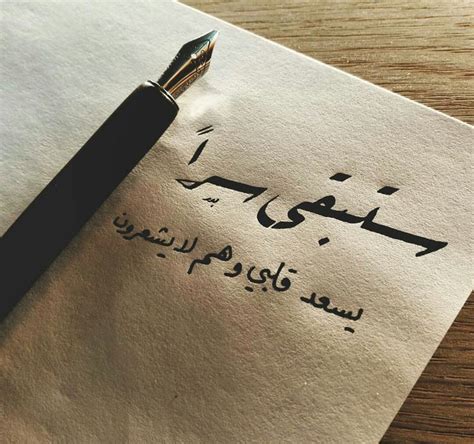 ستبقى سِرّاً
يسعد قلبي وهم لا يشعرون